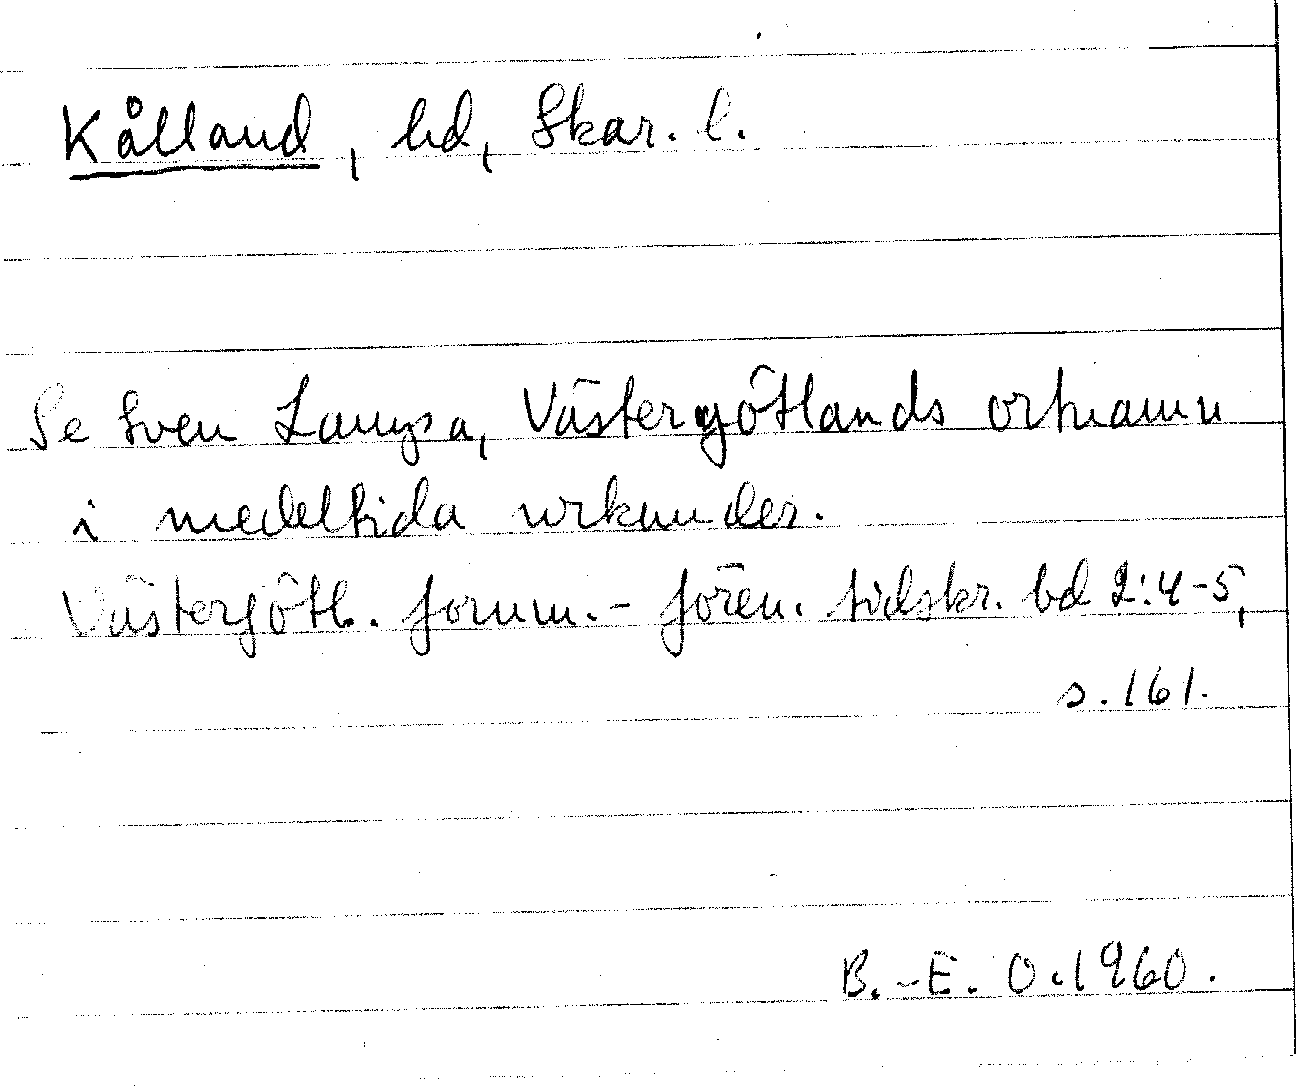 Kålland, hd, Skar. l.
Se Sven Lampa, Västergötlands ortnamn
i medeltida urkunder.
Västergötl. fornm.- fören. tidskr. bd 2:4-5,
s. 161.
B.-E. O. 1960.